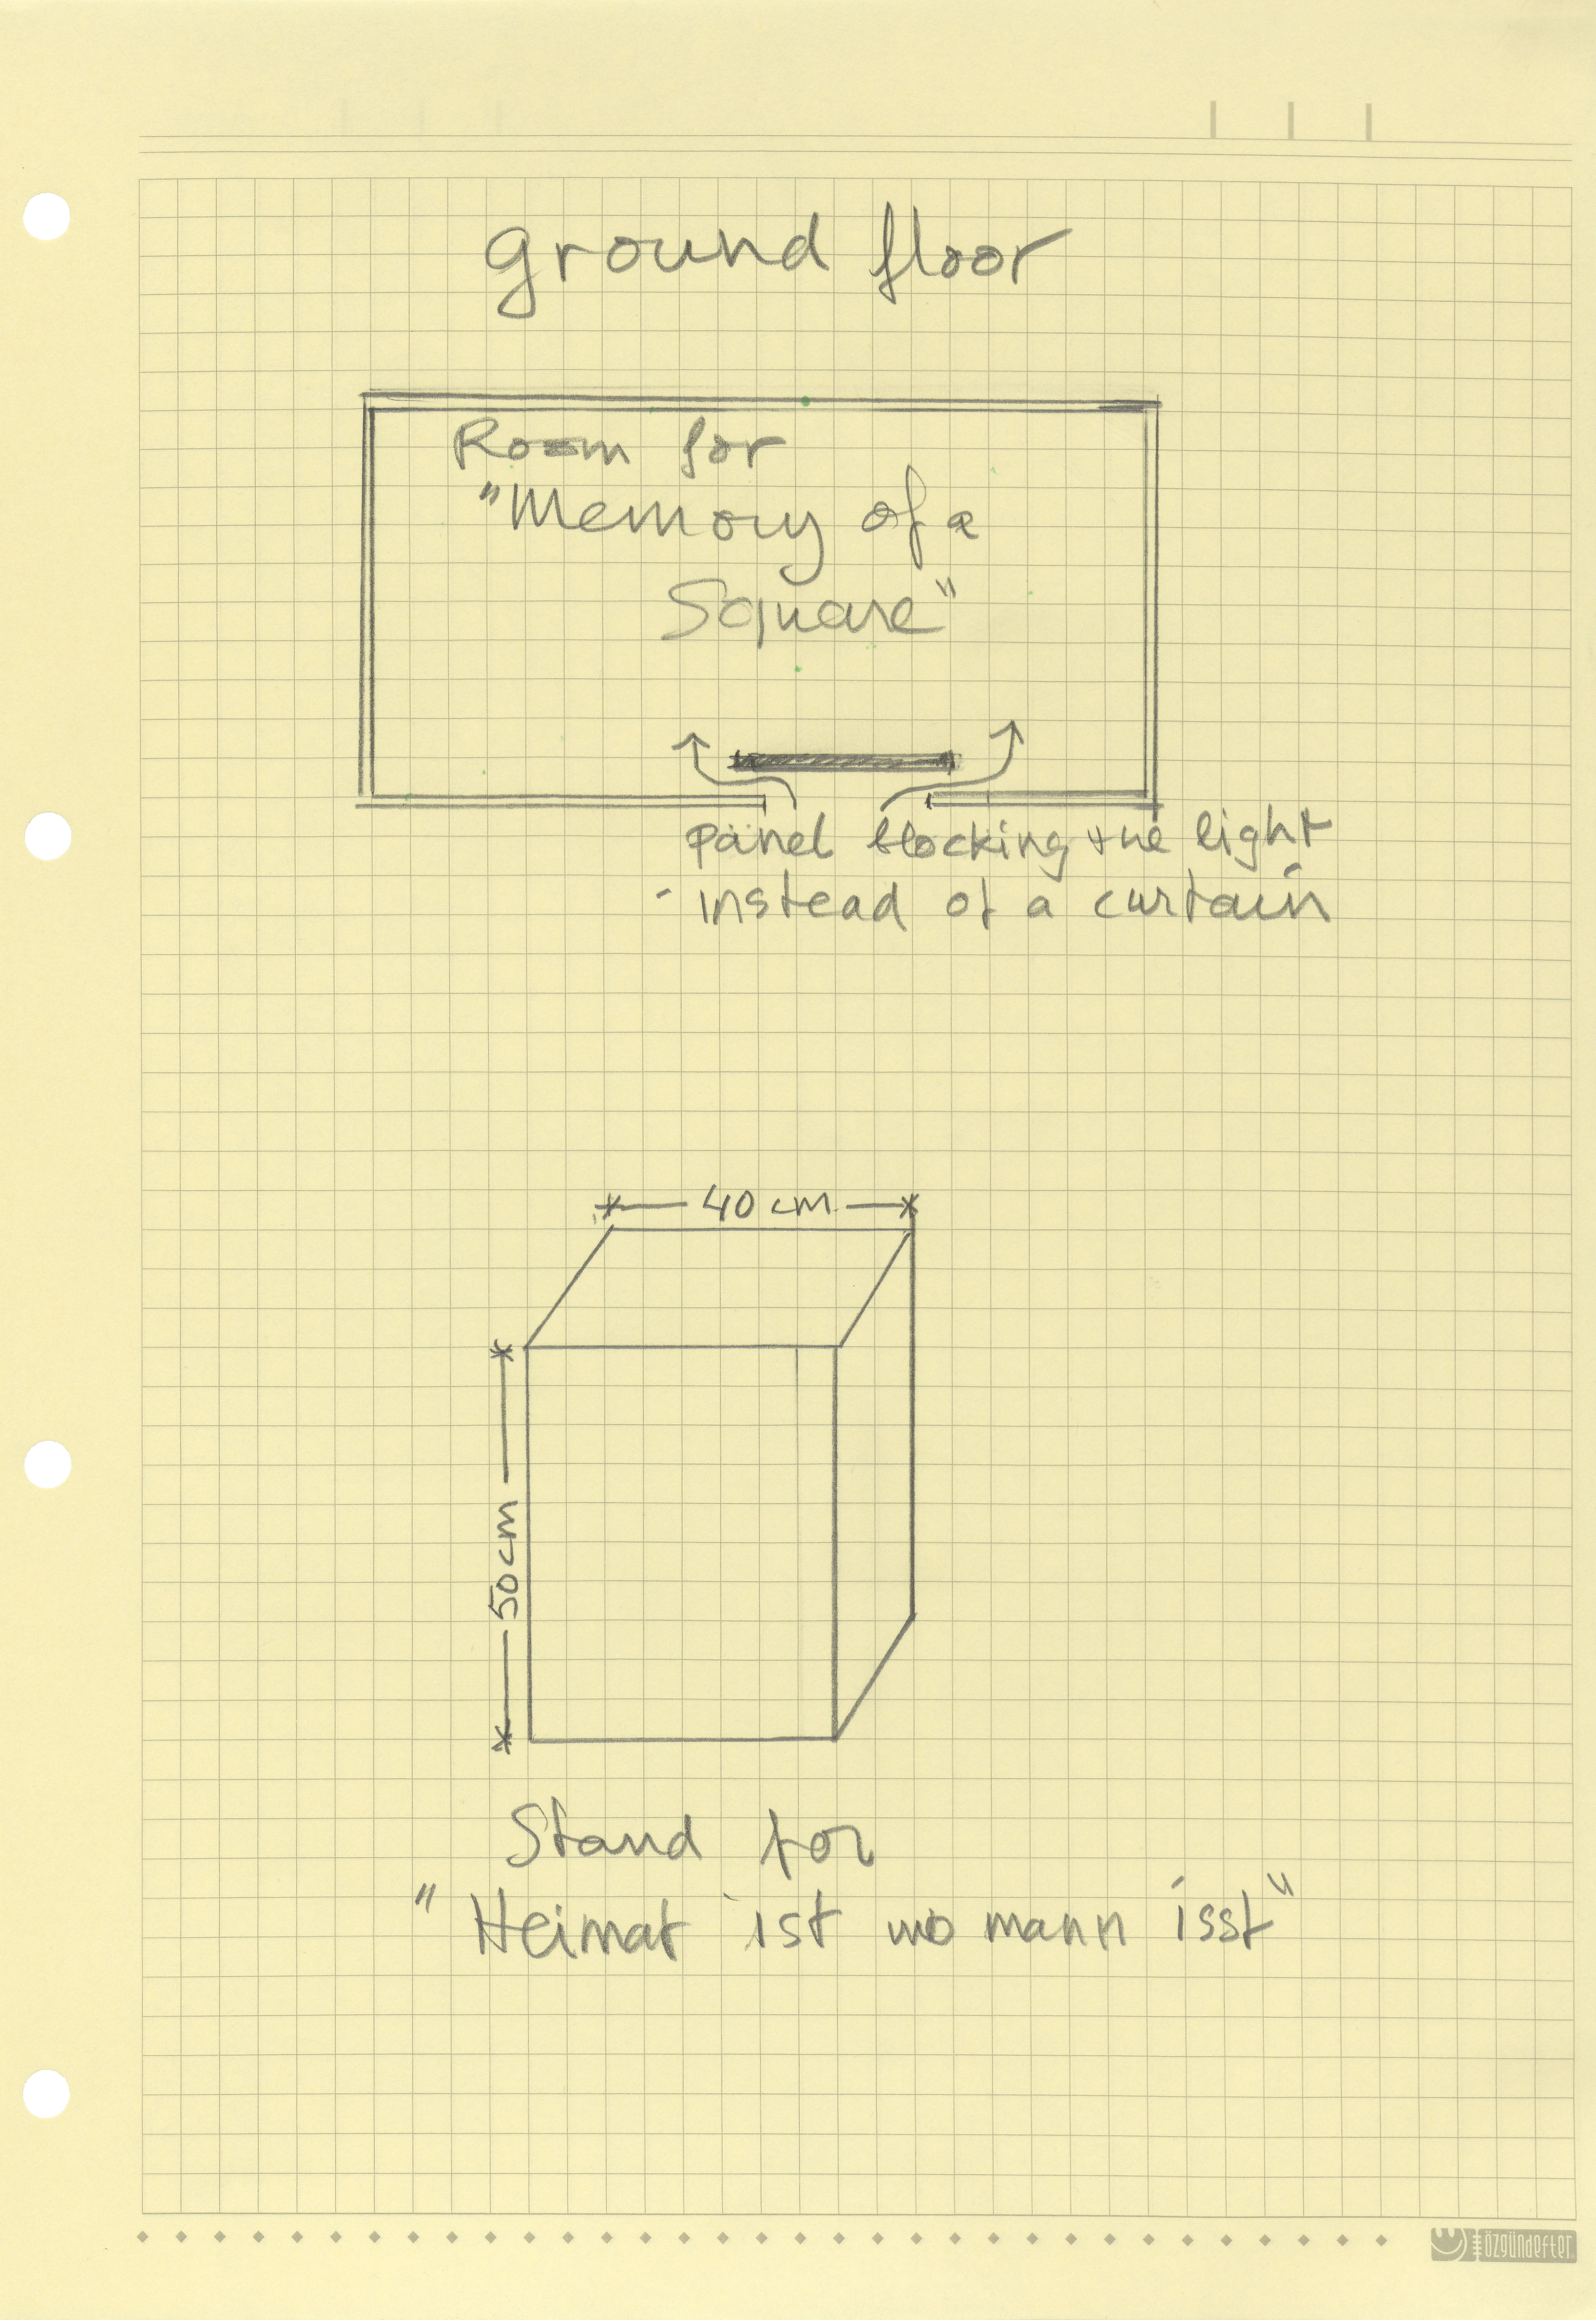 ground floor
Room for
"Memory of a
Square"
panel blocking the light
- instead of a curtain
40 cm
50cm
Stand for
"Heimat ist wo mann isst"
özgündefter